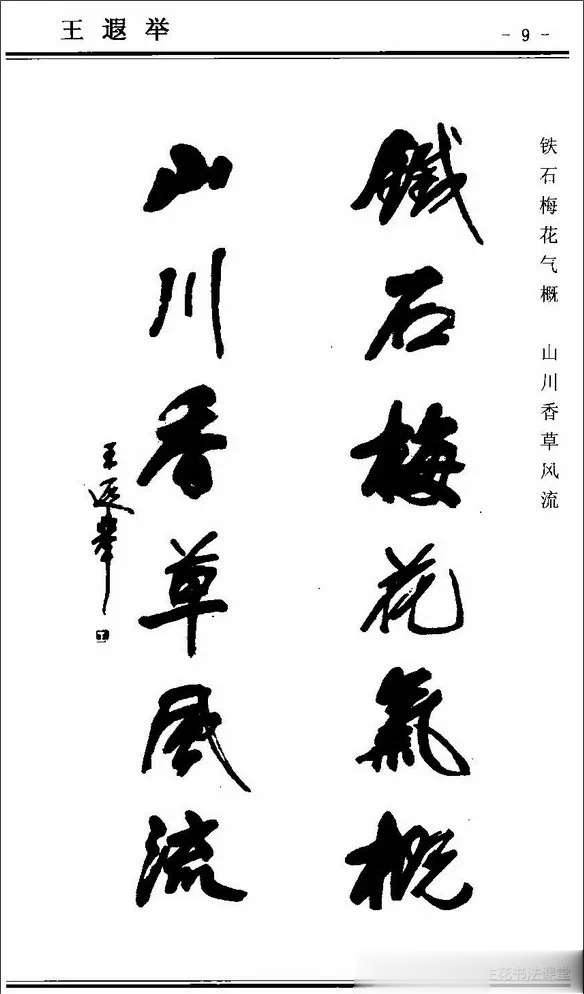 王遐举
- 9 -
铁石梅花气概 山川香草风流
鐵石梅花氣概
山川香草風流
王遐舉
花书法课堂